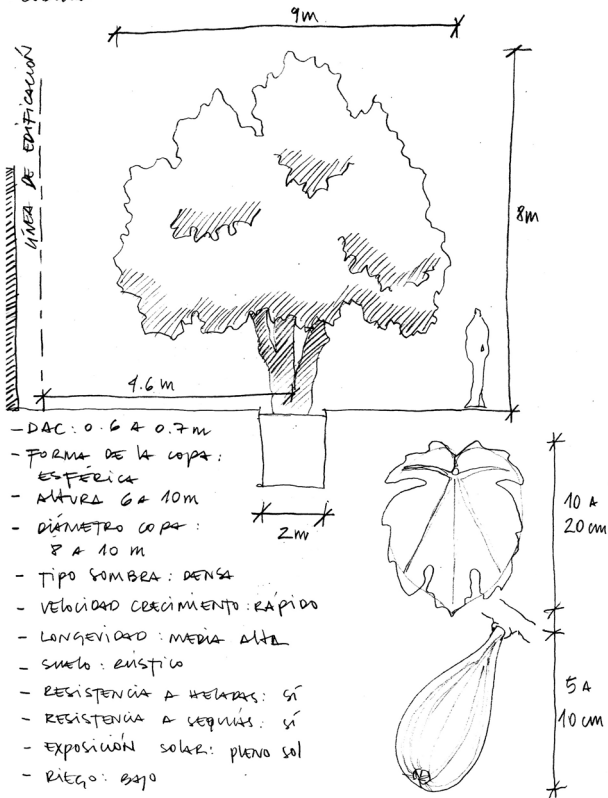 9m
LÍNEA DE EDIFICACIÓN
8m
4.6 m
- DAC: 0.6 A 0.7 m
- FORMA DE LA COPA:
ESFÉRICA
- ALTURA 6 A 10m
- DIÁMETRO COPA:
8 A 10 m
- TIPO SOMBRA: DENSA
- VELOCIDAD CRECIMIENTO: RÁPIDO
- LONGEVIDAD: MEDIA ALTA
- SUELO: RÚSTICO
- RESISTENCIA A HELADAS: SÍ
- RESISTENCIA A SEQUÍAS: SÍ
- EXPOSICIÓN SOLAR: PLENO SOL
- RIEGO: BAJO
2m
10 A
20 cm
5 A
10 cm